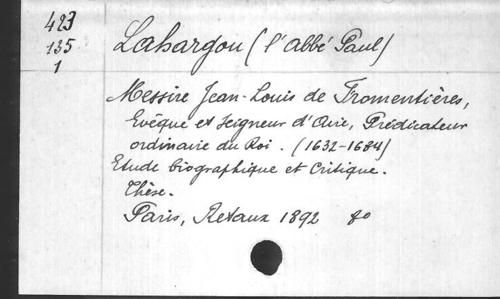 423
135
1
Lahargou (l'abbé Paul)
Messire Jean-Louis de Fromentières,
Evêque et Seigneur d'Aire, Prédicateur
ordinaire du Roi. (1632-1684)
Etude biographique et Critique.
Thèse.
Paris, Retaux 1892 80